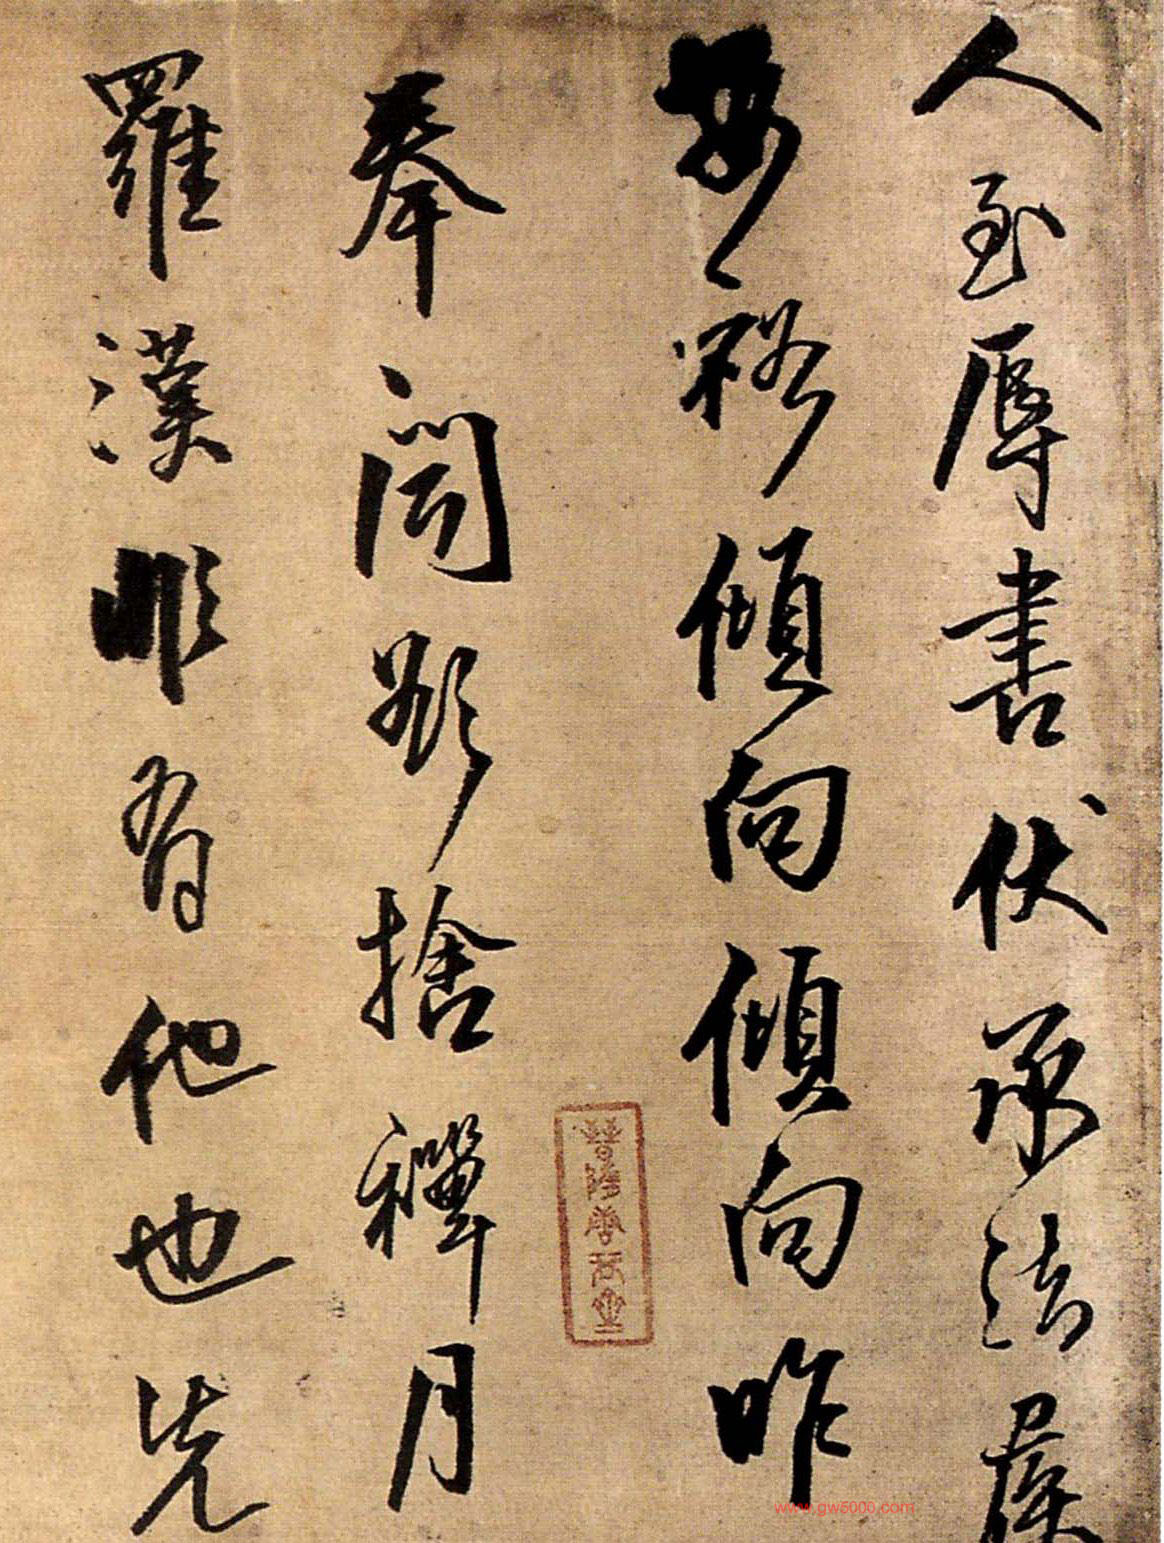 人至辱書伏承法履
安裕傾向傾向昨
奉聞欲捨禪月
羅漢非有他也先
www.gw5000.com